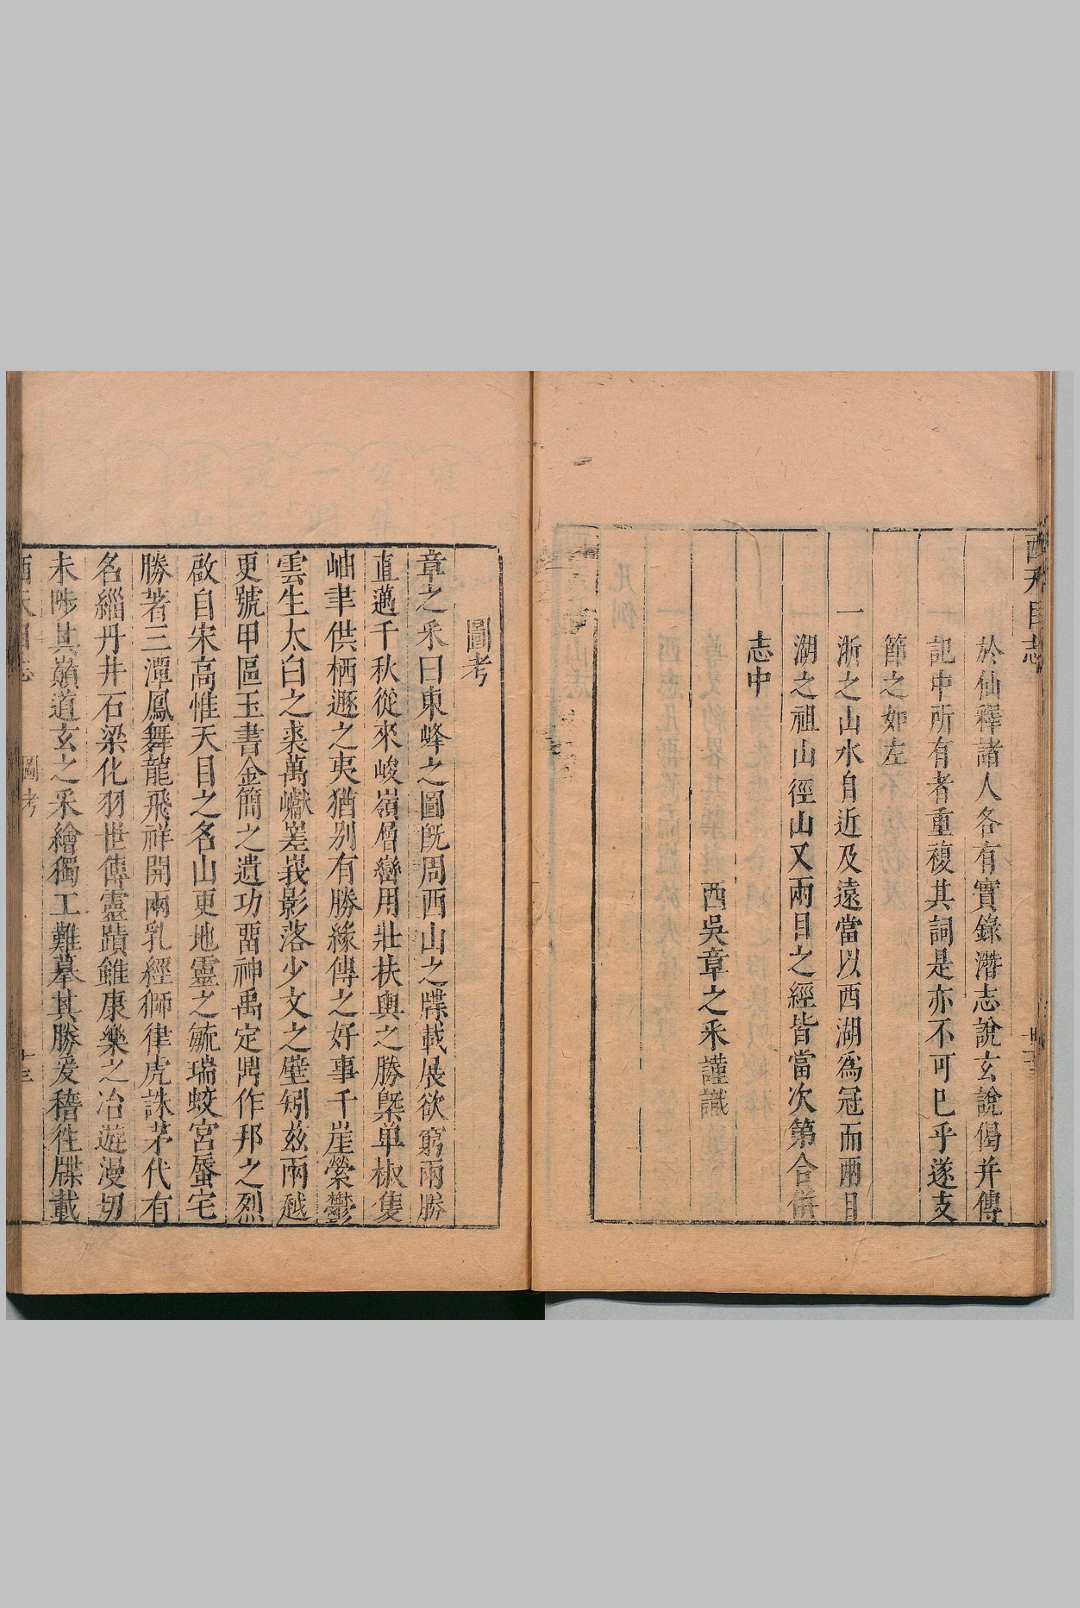 西天目志
於仙釋諸人各有實錄潛志說玄說偈并傳
記中所有者重複其詞是亦不可已乎遂支
節之如左
一浙之山水自近及遠當以西湖爲冠而兩目
湖之祖山徑山又兩目之經皆當次第合併
志中
西吳章之采謹識
圖考
章之采曰東峰之圖旣周西山之牒載展欲窮兩勝
直邁千秋從來峻嶺層巒用壯扶輿之勝槩单椒隻
岫聿供栖遯之夷猶别有勝緣傳之好事千崖縈鬱
雲生太白之裘萬巘嵳峩影落少文之壁矧兹兩越
更號甲區玉書金簡之遺功畱神禹定鼎作邦之烈
啟自宋高惟天目之名山更地靈之毓瑞蛟宮蜃宅
勝著三潭鳳舞龍飛祥開兩乳經獅律虎誅茅代有
名緇丹井石梁化羽世傳靈蹟雖康樂之冶遊漫刕
未陟其巔道玄之采繪獨工難摹其勝爰稽徃牒載
西天目志
圖考
十三